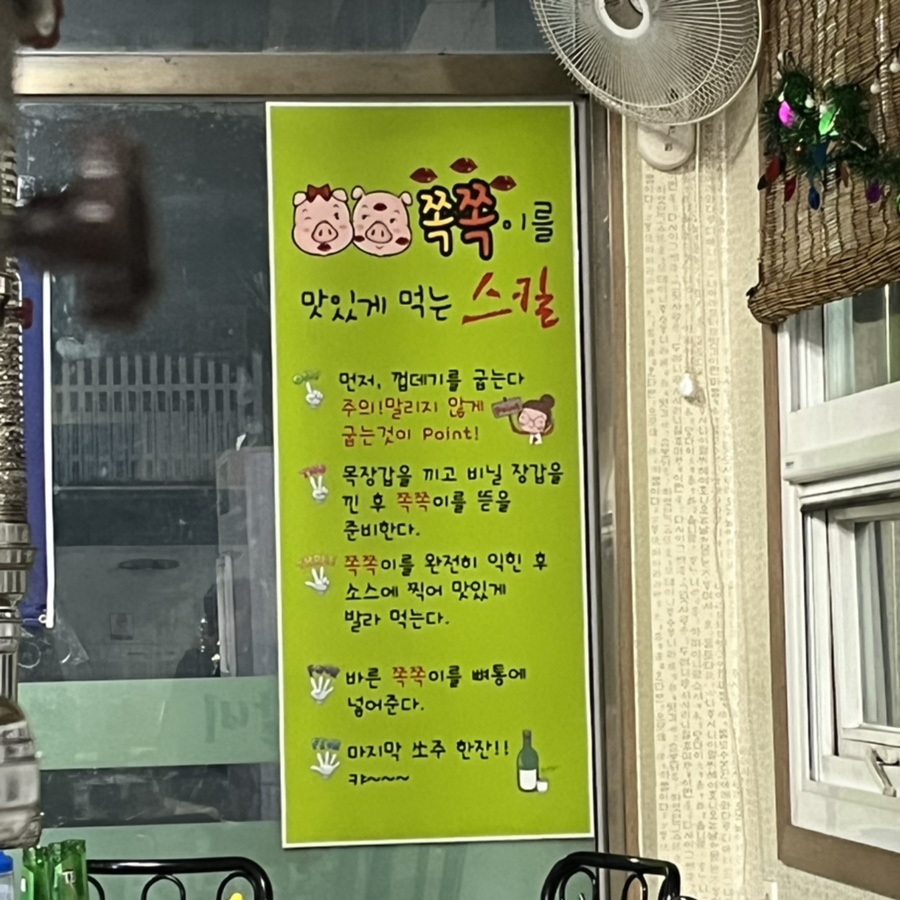 쪽쪽이를
맛있게 먹는 스킬
먼저, 껍데기를 굽는다
주의!말리지 않게
굽는것이 Point!
목장갑을 끼고 비닐 장갑을
낀 후 쪽쪽이를 뜯을
준비한다.
쪽쪽이를 완전히 익힌 후
소스에 찍어 맛있게
발라 먹는다.
바른 쪽쪽이를 뼈통에
넣어준다.
마지막 쏘주 한잔!!
캬~~~~